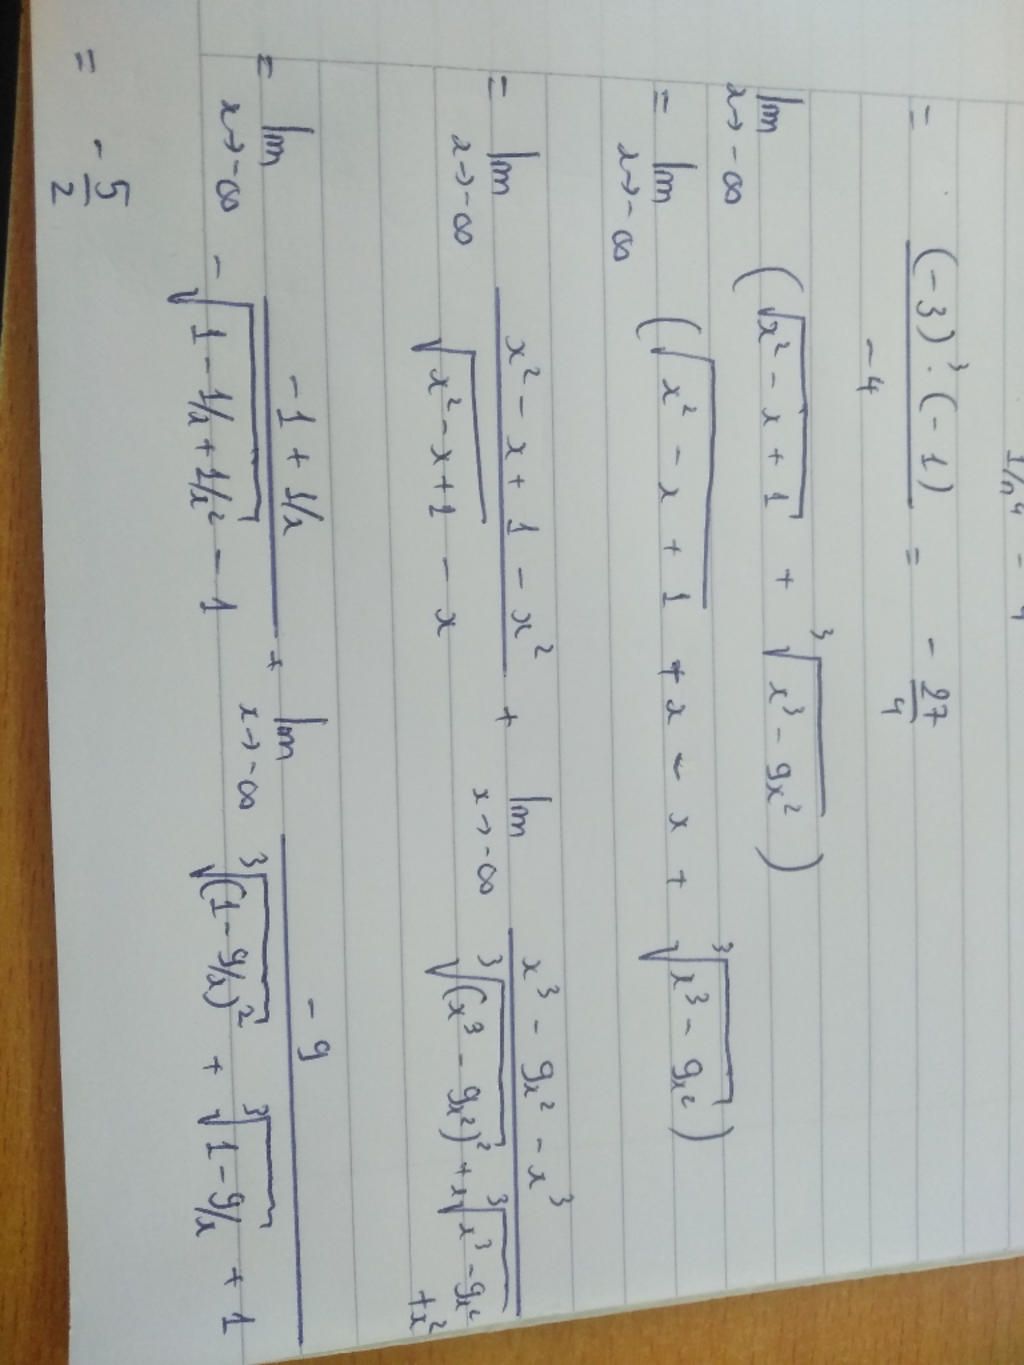 1/n⁴ - 4
= (-3)³·(-1) / -4 = - 27/4
lim x→-∞ (√(x² - x + 1) + ³√(x³ - 9x²))
= lim x→-∞ (√(x² - x + 1) + x - x + ³√(x³ - 9x²))
= lim x→-∞ (x² - x + 1 - x²) / (√(x² - x + 1) - x) + lim x→-∞ (x³ - 9x² - x³) / (³√((x³ - 9x²)²) + x ³√(x³ - 9x²) + x²)
= lim x→-∞ (-1 + 1/x) / (-√(1 - 1/x + 1/x²) - 1) + lim x→-∞ -9 / (³√((1 - 9/x)²) + ³√(1 - 9/x) + 1)
= - 5/2